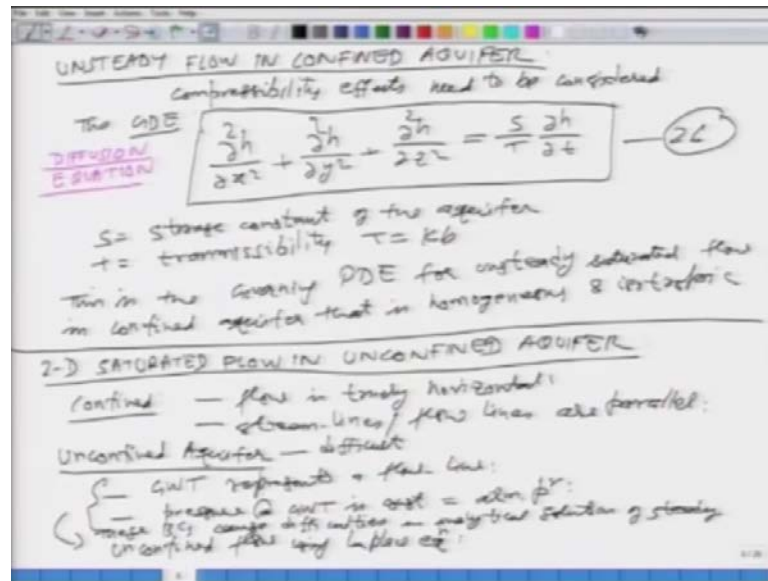 UNSTEADY FLOW IN CONFINED AQUIFER:
compressibility effects need to be considered
The GDE
DIFFUSION
EQUATION
∂²h/∂x² + ∂²h/∂y² + ∂²h/∂z² = S/T ∂h/∂t — 26
S = storage constant of the aquifer
T = transmissibility T = Kb
This is the Governing PDE for unsteady saturated flow
in confined aquifer that is homogeneous & isotropic
2-D SATURATED FLOW IN UNCONFINED AQUIFER
Confined — flow is truly horizontal:
— stream-lines/flow lines are parallel:
Unconfined Aquifer — difficult
— GWT represents a flow line:
— pressure @ GWT is const = atm pr:
These BCs cause difficulties in analytical solution of steady
unconfined flow using Laplace eqn: